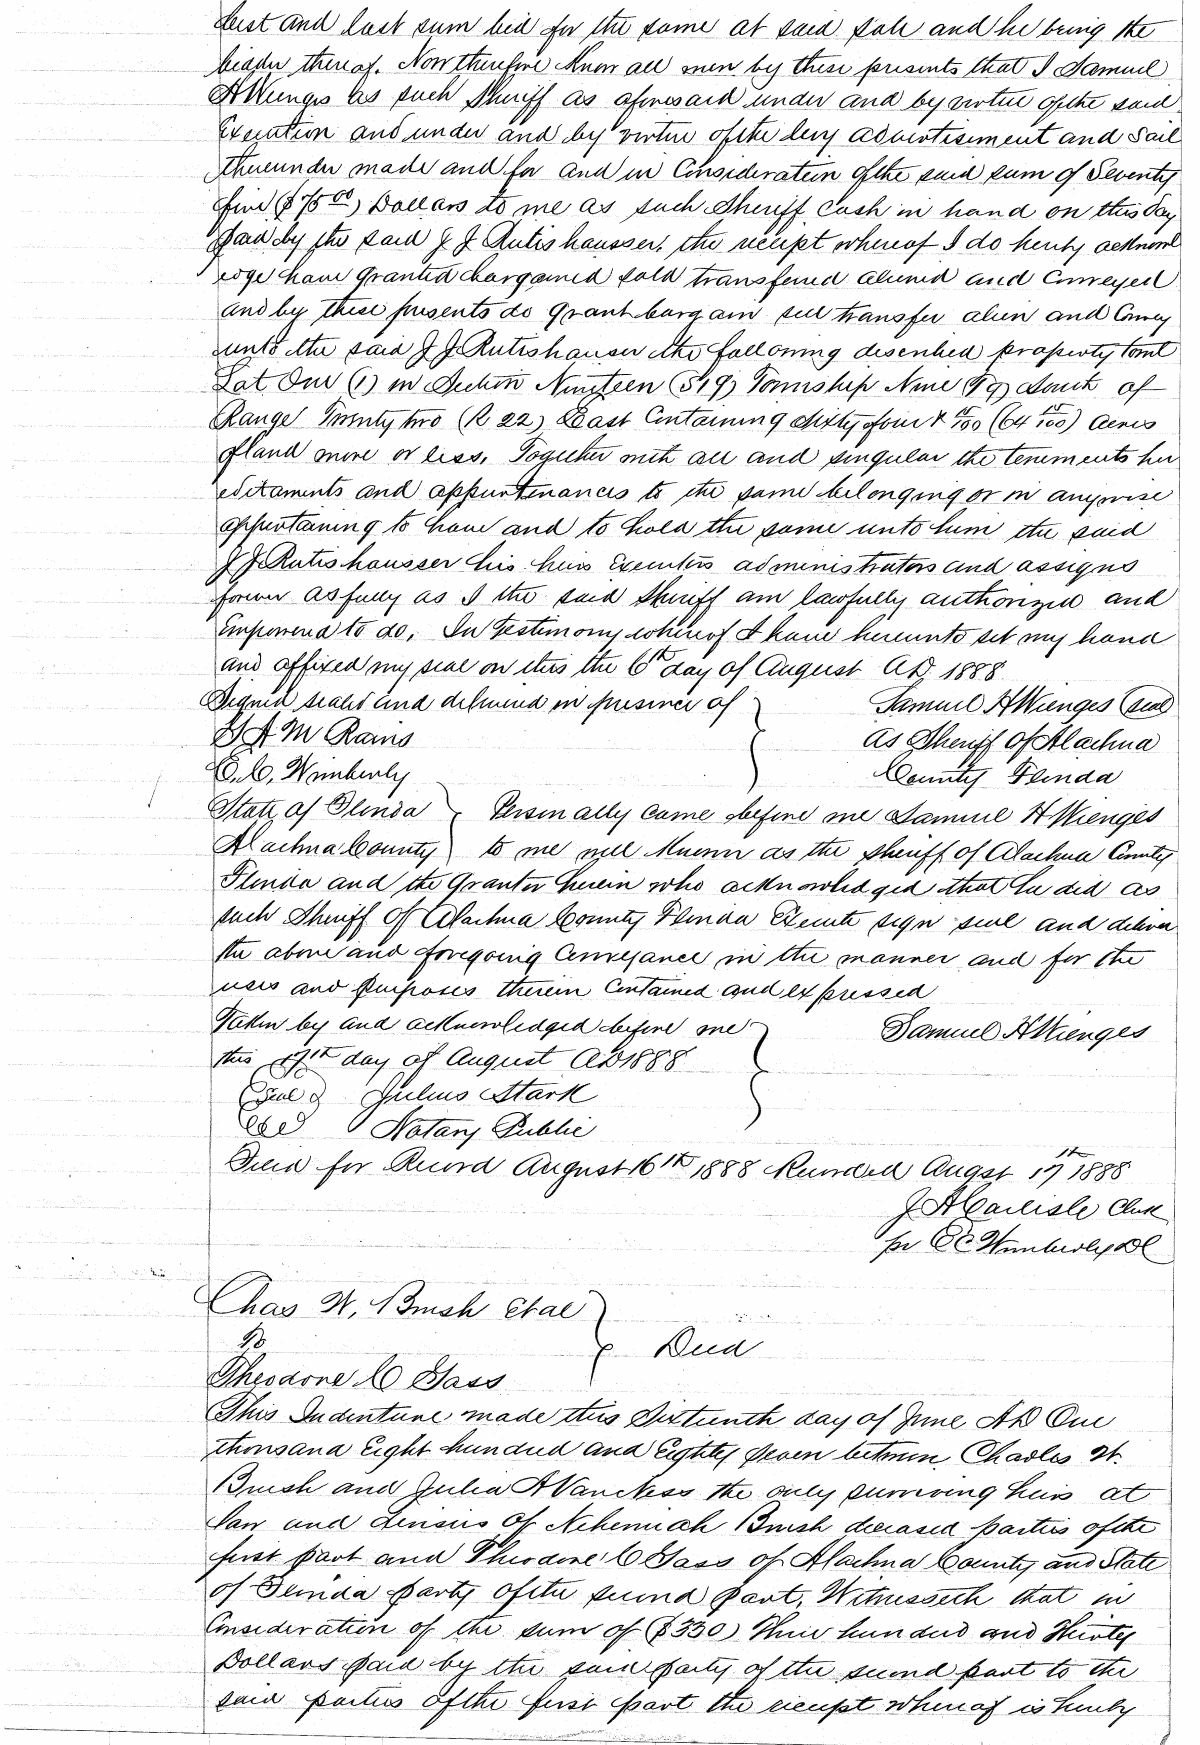 best and last sum bid for the same at said sale and he being the
bidder thereof. Now therefore Know all men by these presents that I Samuel
H Wienges as such Sheriff as aforesaid under and by virtue of the said
Execution and under and by virtue of the levy advertisement and Sail
thereunder made and for and in Consideration of the said sum of Seventy
five ($75 00) Dollars to me as such Sheriff Cash in hand on this day
paid by the said J J Rutishausser, the receipt whereof I do hereby acknowl
edge have Granted bargained sold transfered aliened and Conveyed
and by these presents do grant bargain sell transfer alien and Convey
unto the said J J Rutishauser the following described property towit
Lot One (1) in Section Nineteen (S19) Township Nine (T9) South of
Range Twenty two (R 22) East Containing Sixty four & /100 (64 /100) acres
of land more or less, Together with all and singular the tenements her
editaments and appurtenances to the same belonging or in anywise
appertaining to have and to hold the same unto him the said
J J Rutishausser his heirs Executors administrators and assigns
forever as fully as I the said Sheriff am lawfully authorized and
Empowered to do, In Testimony whereof I have hereunto set my hand
and affixed my seal on this the 6th day of August AD. 1888
Signed sealed and delivered in presence of
Samuel H Wienges (seal)
A M Rains
as Sheriff of Alachua
C. C. Wimberly
County Florida
State of Florida Personally came before me Samuel H Wienges
Alachua County to me well Known as the sheriff of Alachua County
Florida and the Grantor herein who acknowledged that he did as
such Sheriff of Alachua County Florida Execute sign seal and deliver
the above and foregoing Conveyance in the manner and for the
uses and purposes therein Contained and expressed
Taken by and acknowledged before me
Samuel H Wienges
this day of August AD 1888
(Seal) Julius Stark
Notary Public
Filed for Record August 16th 1888 Recorded Augst 17th 1888
J A Carlisle Clerk
pr C C Wimberly DC
Chas W. Brush Etal
To
Deed
Theodore C Gass
This Indenture made this Sixteenth day of June AD One
thousand Eight hundred and Eighty Seven between Charles W.
Brush and Julia A VanNess the only surviving heirs at
law and devisees of Nehemiah Brush deceased parties of the
first part and Theodore C Gass of Alachua County and State
of Florida party of the second part, Witnesseth that in
Consideration of the sum of ($330) Three hundred and Thirty
Dollars paid by the said party of the second part to the
said parties of the first part the receipt whereof is hereby